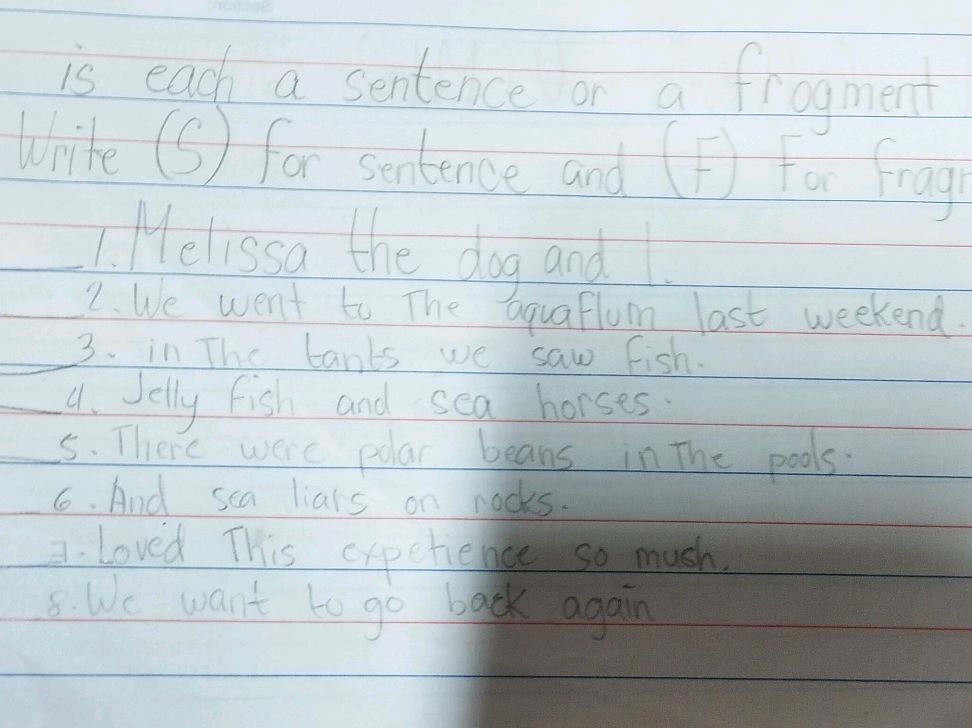 is each a sentence or a frogment
Write (S) for sentence and (F) For fragm
1. Melissa the dog and I.
2. We went to The aquaflum last weekend.
3. in The tants we saw fish.
4. Jelly fish and sea horses.
5. There were polar beans in The pools.
6. And sea liars on rocks.
7. Loved This expetience so mush.
8. We want to go back again